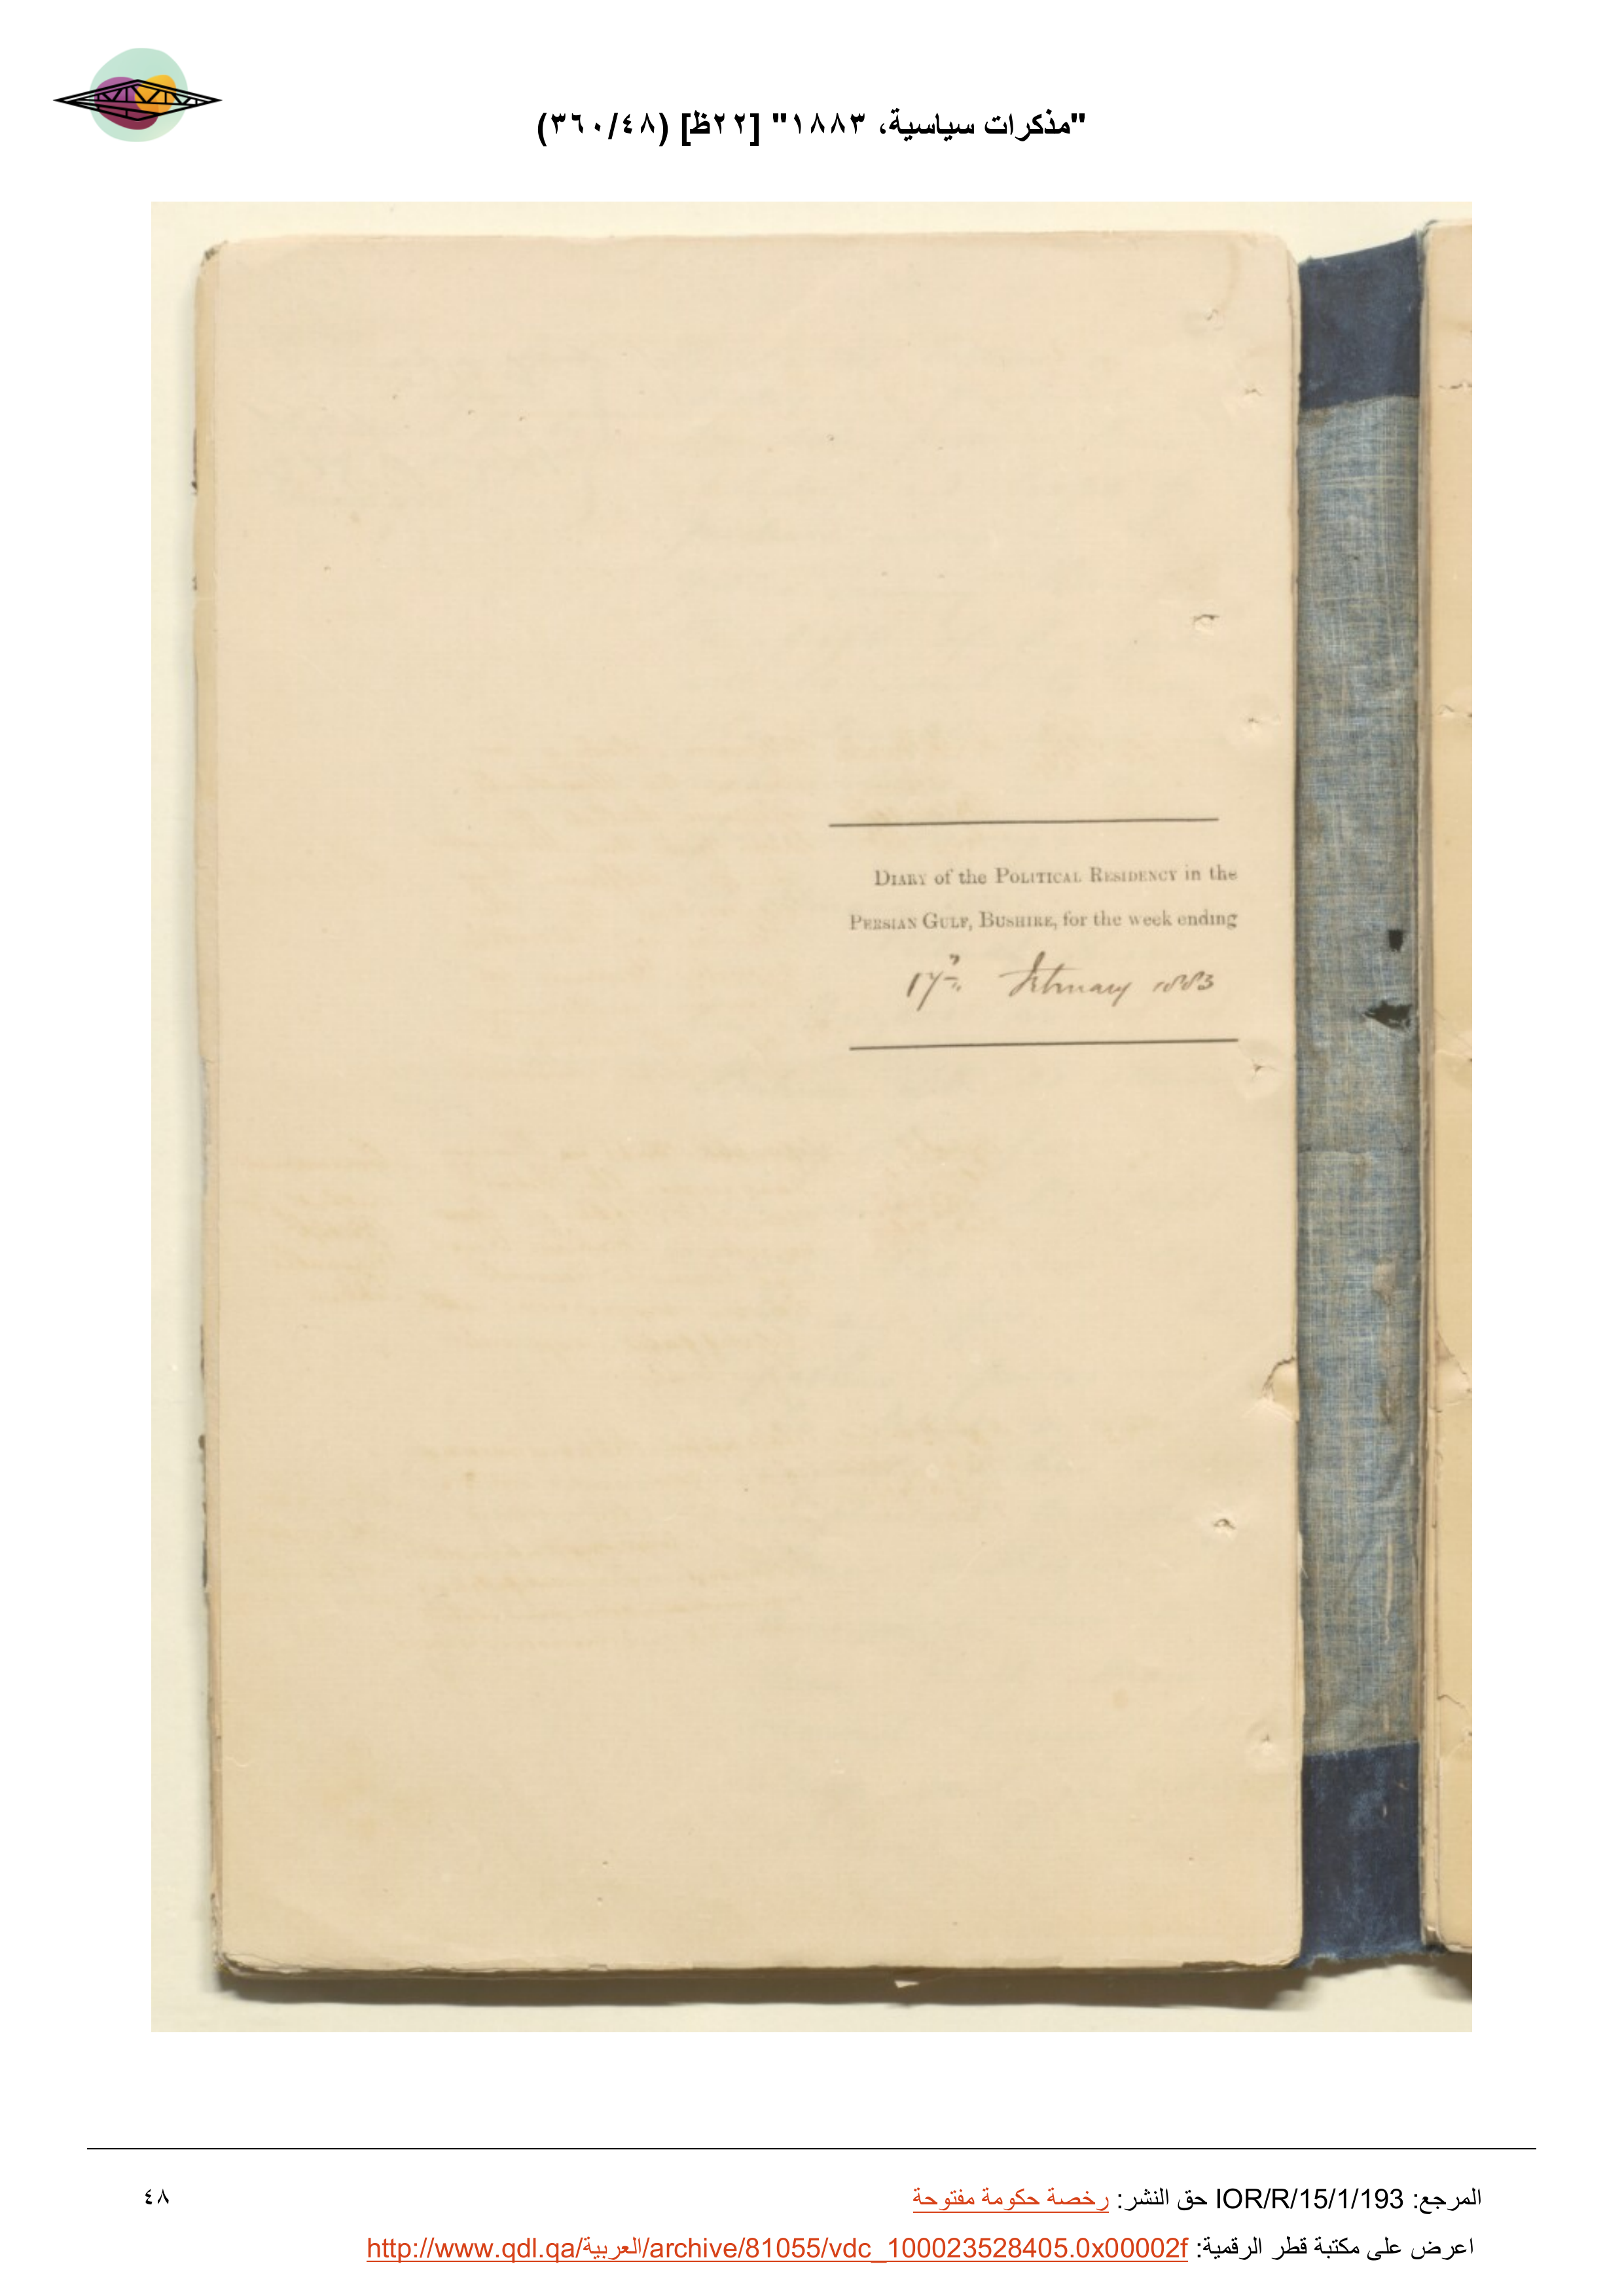 "مذكرات سياسية، ١٨٨٣" [٢٢ظ] (٣٦٠/٤٨)
DIARY of the POLITICAL RESIDENCY in the
PERSIAN GULF, BUSHIRE, for the week ending
17th February 1883
المرجع: IOR/R/15/1/193 حق النشر: رخصة حكومة مفتوحة
٤٨
اعرض على مكتبة قطر الرقمية: http://www.qdl.qa/العربية/archive/81055/vdc_100023528405.0x00002f